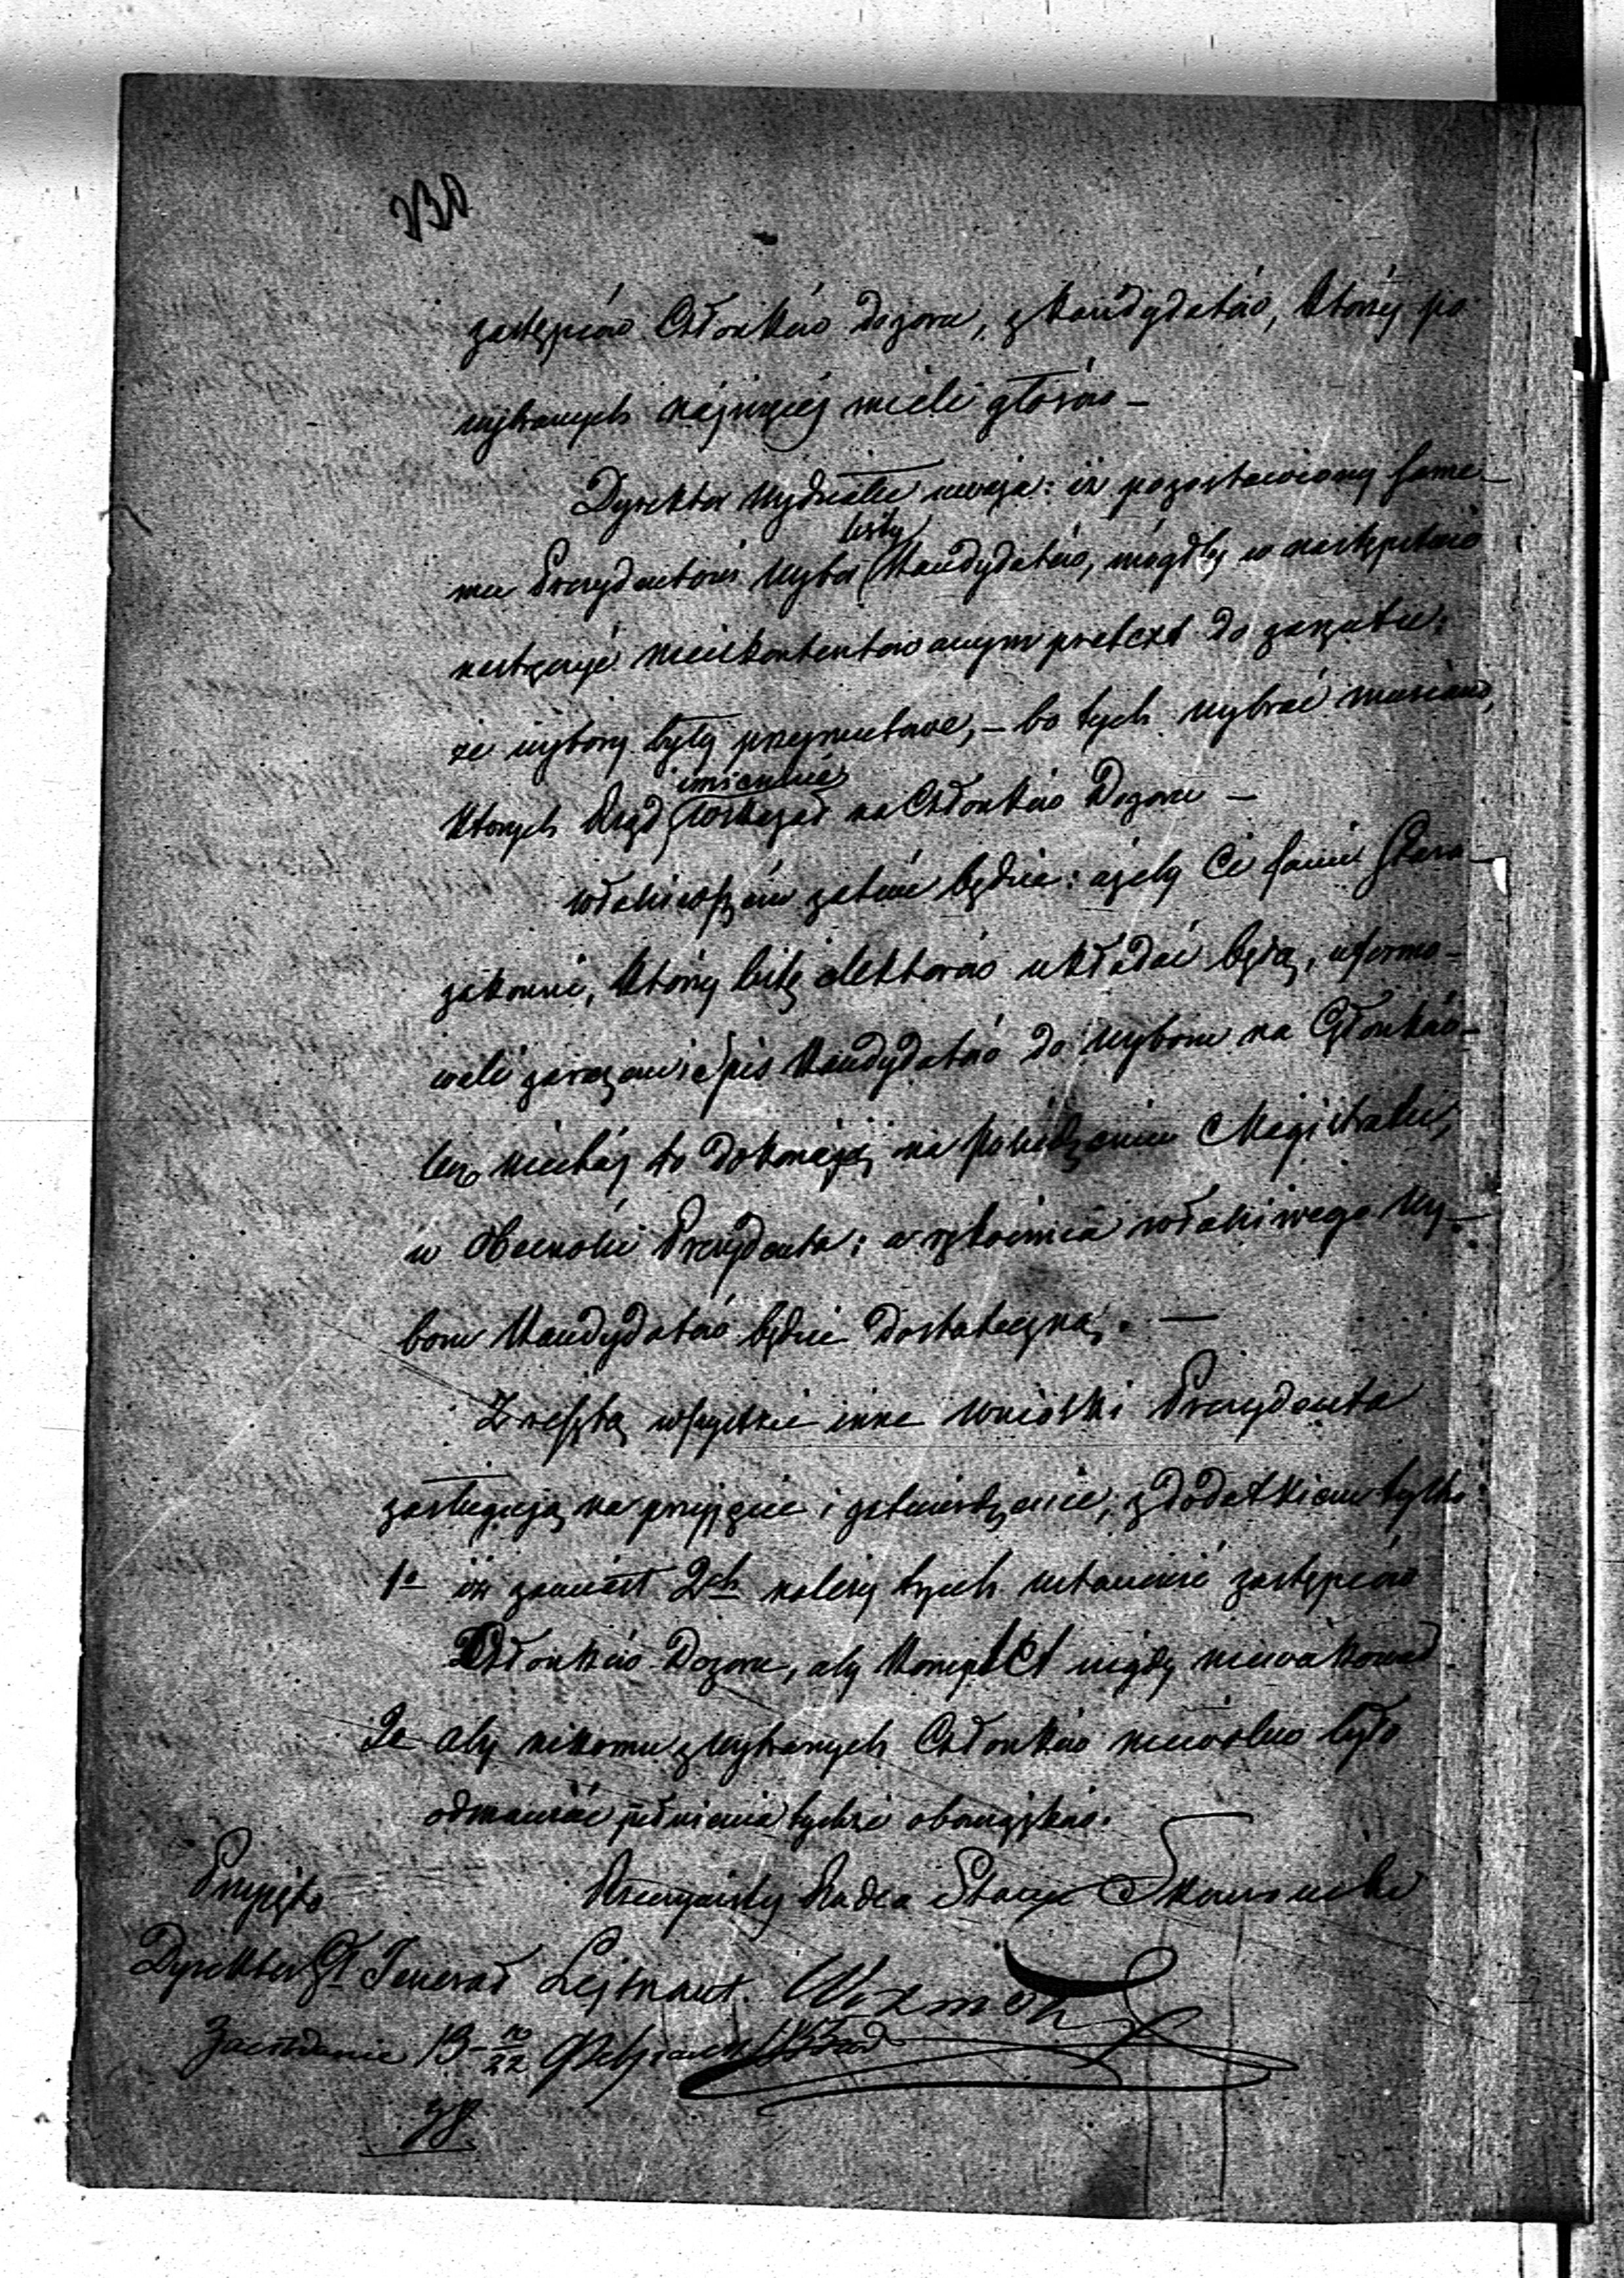 230
zastępców Członków Dozoru, z Kandydatów, którzy po
wybranych najwięcéj mieli głosów —
Dyrektor Wydziału uważa: iż pozostawiony same-
mu Prezydentowi wybór listy Kandydatów, mógłby w następstwie
nastręczyć nieukontentowanym pretext do zarzutu:
że wybory były przymusowe, — bo tych wybrać musiano,
których Rząd imiennie wskazał na Członków Dozoru —
właściwszém zatém będzie: ażeby Ci sami Staro-
zakonni, którzy listę elektorów układać będą, uformo-
wali zarazem i spis Kandydatów do wyboru na Członków
lecz niechaj to dokonają na posiedzeniu Magistratu,
w obecności Prezydenta; a rękojmia właściwego wy-
boru Kandydatów będzie dostateczną. —
Zresztą wszystkie inne wnioski Prezydenta
zasługują na przyjęcie i zatwierdzenie, z dodatkiem tylko
1o iż zamiast 2ch należy trzech ustanowić zastępców
Członków Dozoru, aby komplet nigdy niewakował
2e aby nikomu z wybranych Członków niewolno było
odmawiać pełnienia tychże obowiązków.
Przyjęto
Rzeczywisty Radca Stanu
Dyrektor Gł. Jenerał Lejtnant.
Zasiedzenie 13 — 10/22
38